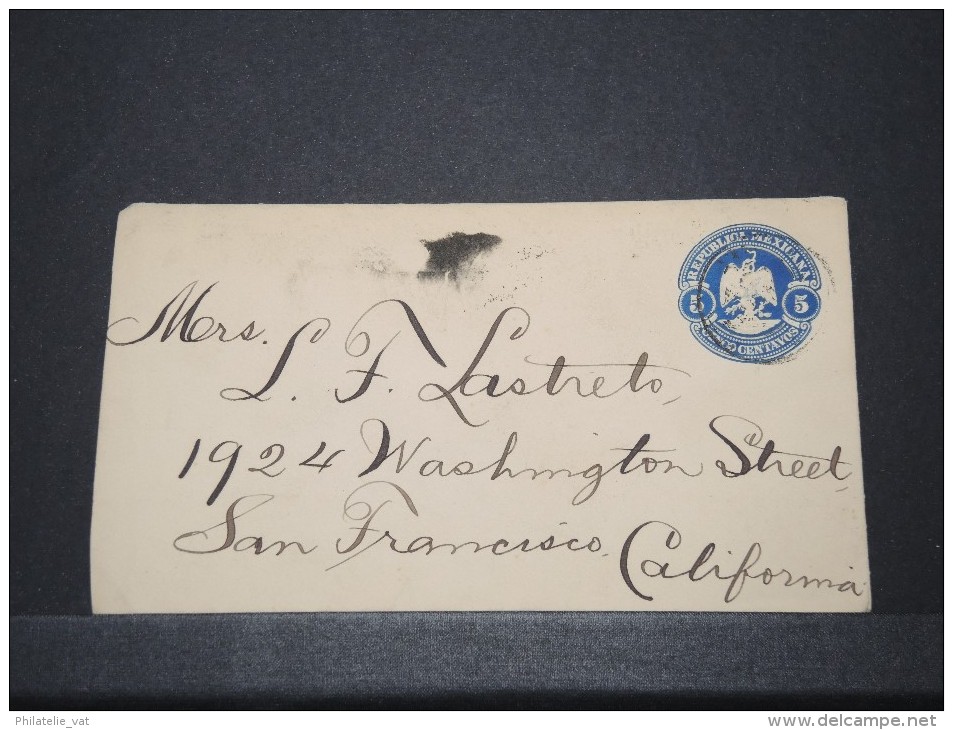 REPUBLICA MEXICANA
5 5
CENTAVOS
Mrs.
L. F. Lastreto,
1924 Washington Street,
San Francisco. California
Philatelie_vat
delcampe.net